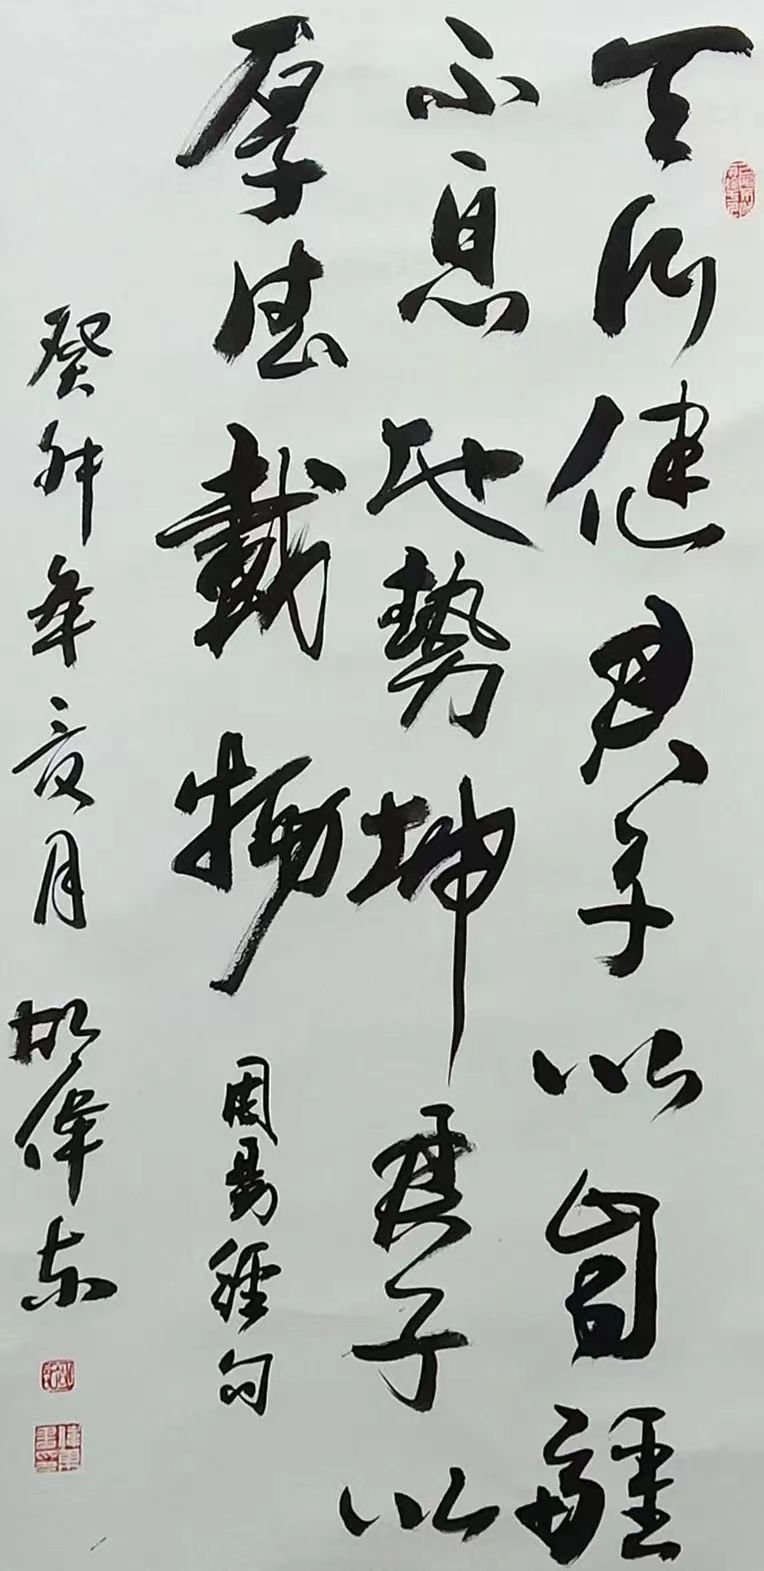 天行健君子以自疆
不息地勢坤君子以
厚德載物 周易經句
癸卯年夏月 胡偉东